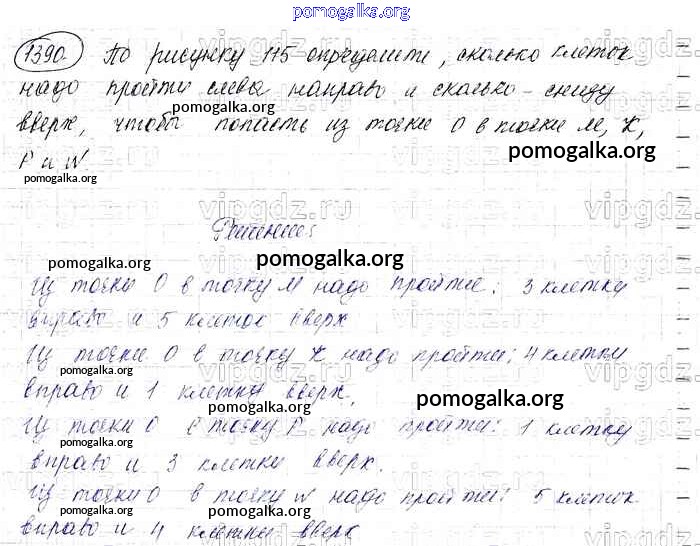 pomogalka.org
1390. По рисунку 115 определите, сколько клеток
надо пройти слева направо и сколько - снизу
pomogalka.org
вверх, чтобы попасть из точки О в точки М, К,
pomogalka.org
Р и N
pomogalka.org
vipgdz.ru vipgdz.ru vipgdz
Решение:
pomogalka.org pomogalka.org
Из точки О в точку М надо пройти: 3 клетки
вправо и 5 клеток вверх
Из точки О в точку К надо пройти: 4 клетки
pomogalka.org
вправо и 1 клетку вверх.
pomogalka.org pomogalka.org
Из точки О в точку Р надо пройти: 1 клетку
pomogalka.org
вправо и 3 клетки вверх.
Из точки О в точку N надо пройти: 5 клеток
pomogalka.org pomogalka.org
вправо и 4 клетки вверх